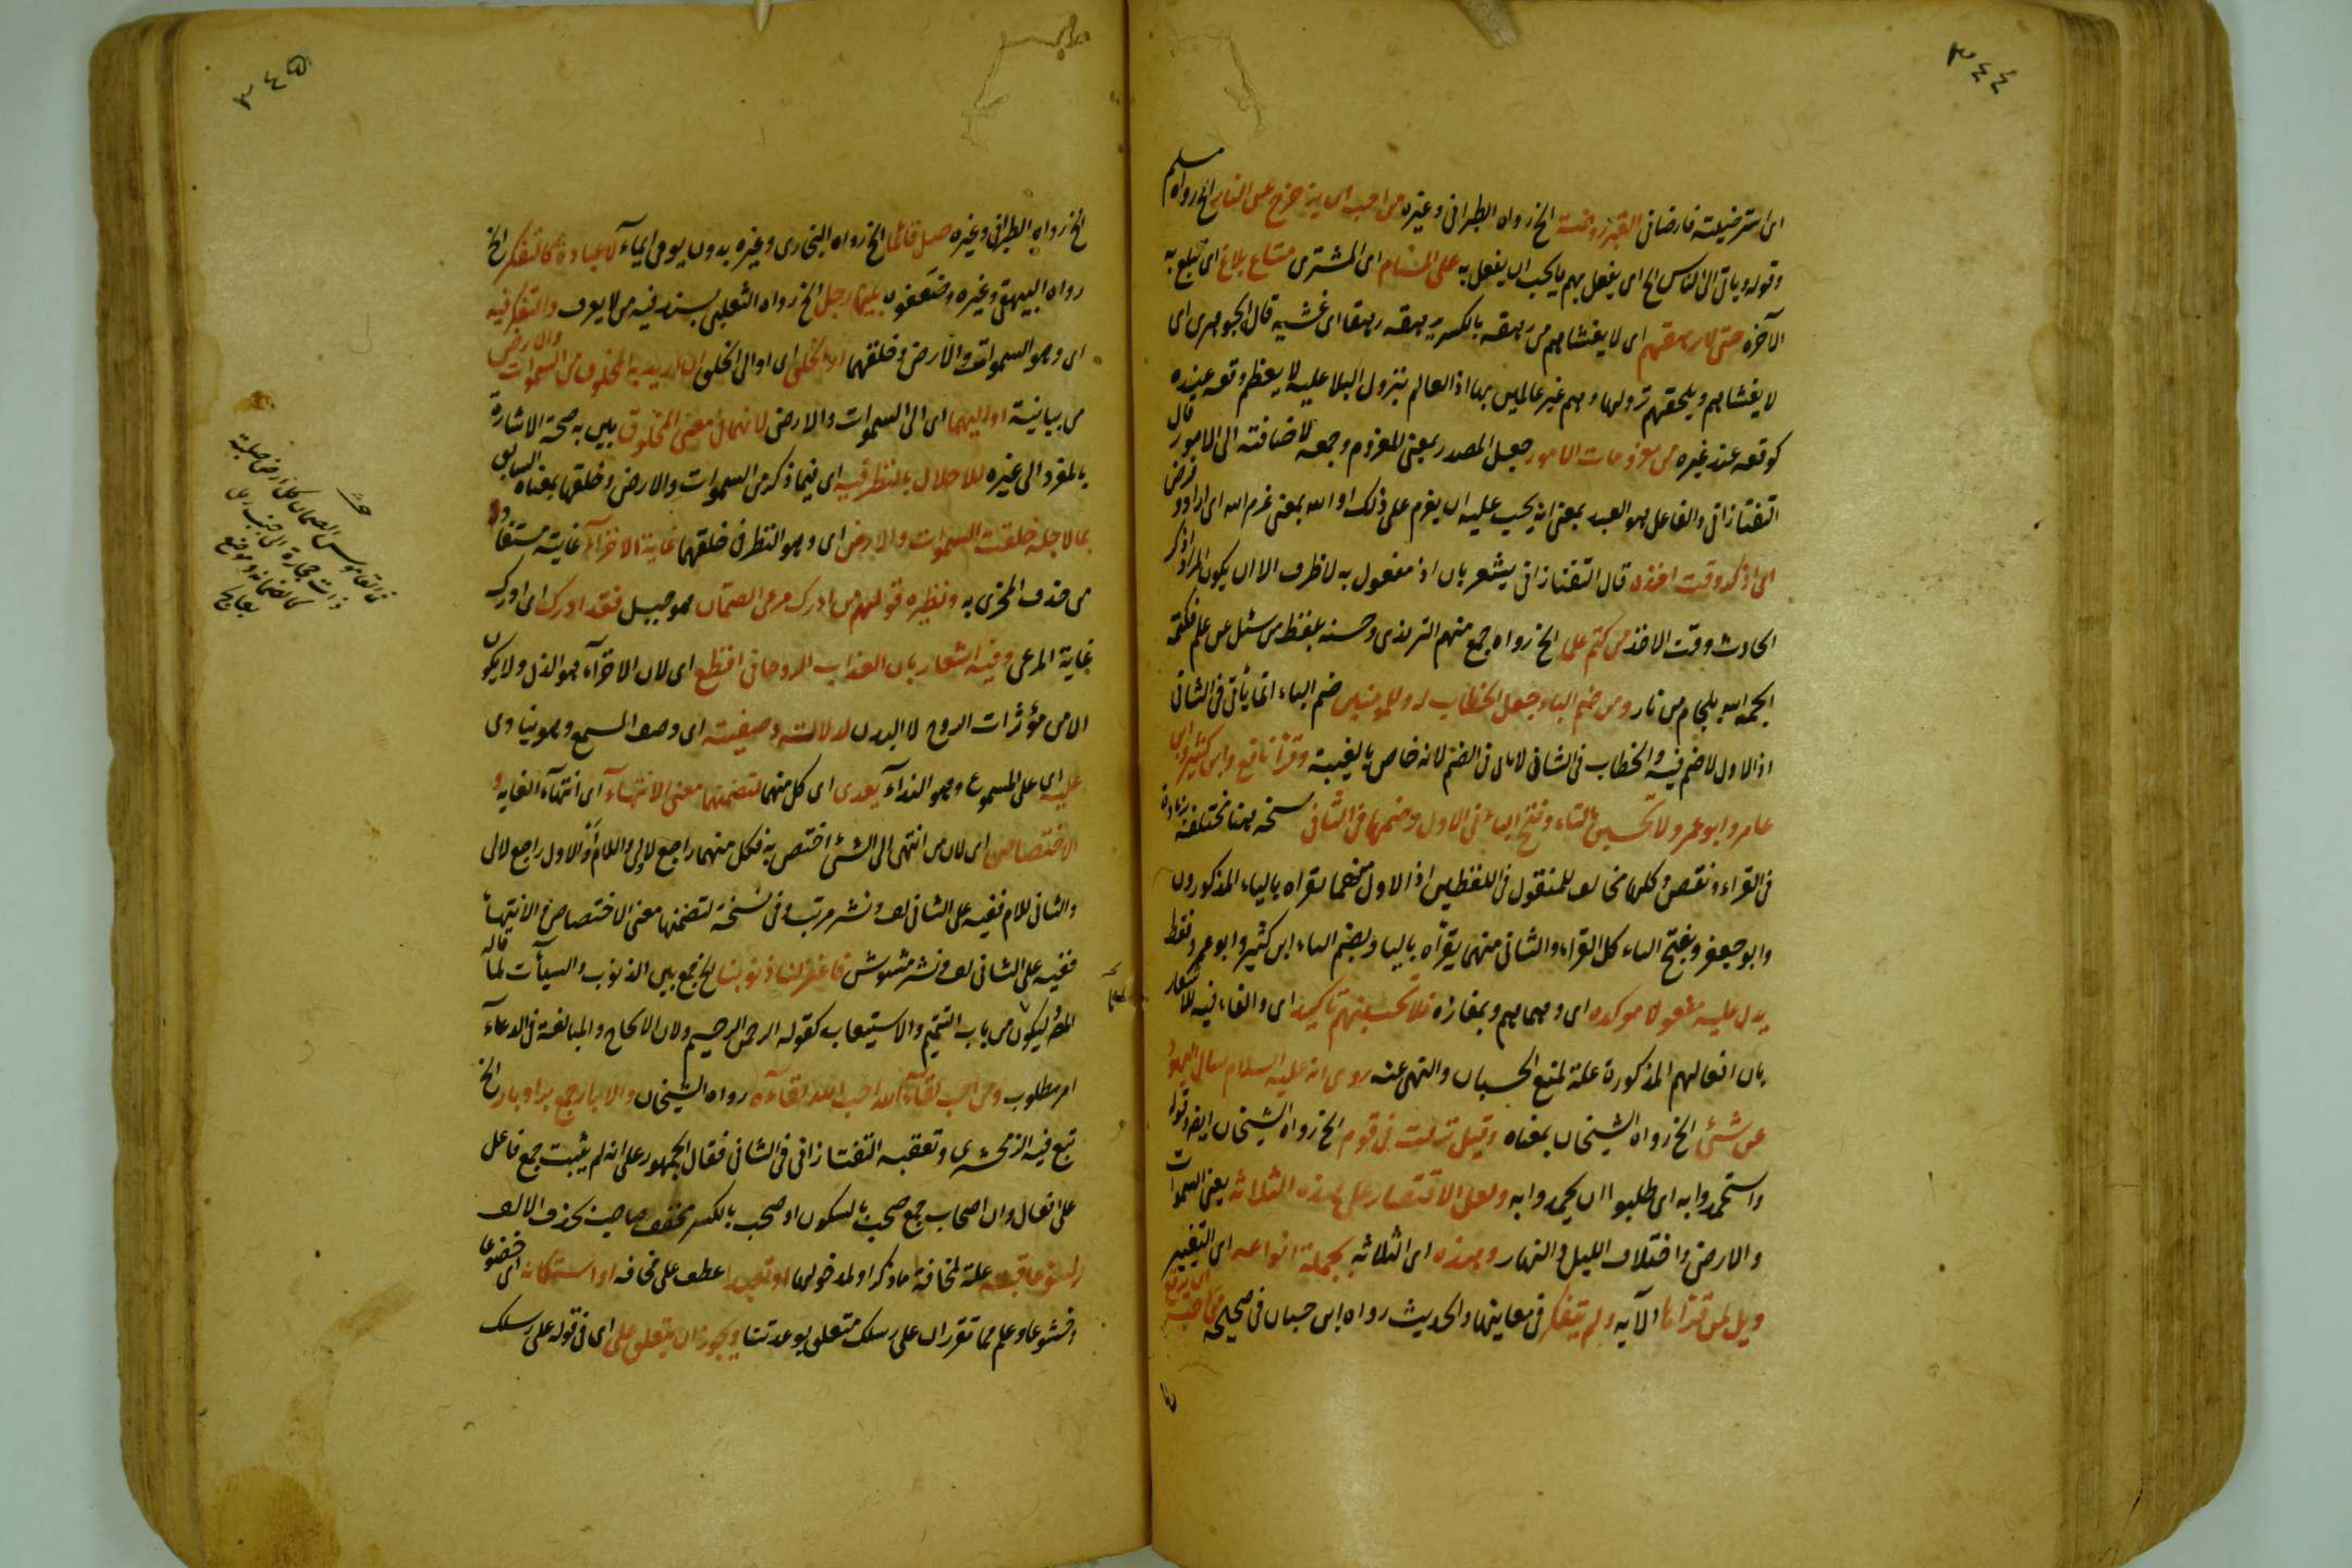 ٣٤٤
اى استرضيته فارضانى القبر روضة الخ رواه الطبرانى وغيره من احب ان يزحزح عن النار الخ رواه مسلم
وقوله وياتى الى الناس الخ اى يفعل بهم ما يحب ان يفعل به على المستام اى المشترى متاع بلاغ اى تبلغ به
الآخرة حتى لا يرهقهم اى لا يغشاهم من رهقه بالكسر يرهقه رهقا اى غشيه قال الجوهرى اى
لا يغشاهم ويلحقهم نزولها وهم غير عالمين بها اذ العالم بنزول البلاء عليه لا يعظم وقعه عنده
كوقعه عند غيره من معزومات الامور جعل المصدر بمعنى المعزوم وجمعه لاضافته الى الامور قال
التفتازانى والفاعل هو العبد بمعنى انه يجب عليه ان يعزم على ذلك او الله بمعنى عزم الله اى اراد وفرض
اى اذكر وقت اخذه قال التفتازانى يشعر بان اذ مفعول به لا ظرف الا ان يكون المراد اذكر
الحادث وقت الاخذ من كتم علما الخ رواه جمع منهم الترمذى وحسنه بلفظ من سئل عن علم فكتمه
الجمه الله بلجام من نار ومن ضم الباء جعل الخطاب له وللمؤمنين ضم الباء انما يأتى فى الثانى
اذ الاول لا ضم فيه والخطاب فى الثانى لا ياتى فى الضم لانه خاص بالغيبة وقرأ نافع وابن كثير وابن
عامر وابو عمرو لا تحسبن بالتاء وفتح الباء فى الاول وضمها فى الثانى نسخه هنا مختلفة بزيادة
فى القراء ونقص وكلها مخالف للمنقول فى اللفظين اذ الاول منهما يقراه بالياء المذكورون
وابو جعفر وبفتح الباء كل القراء والثانى منهما يقرأه بالياء وبضم الباء ابن كثير وابو عمرو فقط
يدل عليه مفعولا مؤكده اى وهما هم وبمفازة فلا تحسبنهم تاكيد اى والفاء فيه للاشعار
بان افعالهم المذكورة علة لمنع الحسبان والنهى عنه روى انه عليه السلام سال اليهود
عن شئ الخ رواه الشيخان بمعناه وقيل نزلت فى قوم الخ رواه الشيخان ايضا وقوله
واستحمدوا به اى طلبوا ان يحمدوا به ولعل الاقتصار على هذه الثلاثة يعنى السموات
والارض واختلاف الليل والنهار وهذه اى الثلاثه بجملة انواعه اى التغيير
ويل لمن قرأها الآيه ولم يتفكر فى معاينها والحديث رواه ابن حبان فى صحيحه
٣٤٥
الخ رواه الطبرانى وغيره صل قائما الخ رواه البخارى وغيره بدون يومى ايماء لا عبادة كالتفكر الخ
رواه البيهقى وغيره وضعفوه بينما رجل الخ رواه الثعلبى بسند فيه من لا يعرف والتفكر فيه
اى وهو السموات والارض وخلقهما او الخلق اى او الى الخلق ان اريد به المخلوق من السموات والارض
من بيانية او اليهما اى الى السموات والارض لانهما فى معنى المخلوق بين به صحة الاشارة
بالمفرد الى غيره للاخلال بالنظر فيه اى فيما ذكر من السموات والارض وخلقها بمعناه السابق
بما لاجله خلقت السموات والارض اى وهو النظر فى خلقهما غاية الاخزاء غايته مستفاد
من حذف المخزى به ونظيره قولهم من ادرك مرعى الصمان هو جبل فقد ادرك اى ادرك
غاية المرعى وفيه اشعار بان العذاب الروحانى افظع اى لان الاخزاء هو الذل ولا يكون
الا من مؤثرات الروح لا البدن لدلالته وصفيته اى وصف المسمع وهو ينادى
عليه اى على المسموع وهو النداء يعدى اى كل منهما لتضمنهما معنى الانتهاء اى انتهاء الغايه و
الاختصاص اى لان من انتهى الى الشئ اختص به فكل منهما راجع لالى واللام او الاول راجع لالى
والثانى للام ففيه على الثانى لف ونشر مرتب وفى نسخة لتضمنها معنى الاختصاص والانتهاء
ففيه على الثانى لف ونشر مشوش فاغفر لنا ذنوبنا الخ جمع بين الذنوب والسيآت لما قاله
المص وليكون من باب التتميم والاستيعاب كقوله الرحمن الرحيم ولان الالحاح والمبالغة فى الدعاء
امر مطلوب ومن احب لقاء الله احب الله لقاءه رواه الشيخان والابرار جمع بر او بار الخ
تبع فيه الزمخشرى وتعقبه التفتازانى فى الثانى فقال الجمهور على انه لم يثبت جمع فاعل
على افعال وان اصحاب جمع صحب بالسكون او صحب بالكسر مخفف صاحب بحذف الالف
لسوء عاقبته علة لمخافة ما ذكر او لمدخولها او تعبدا عطف على مخافه او استكانه اى خضوعا
وخشوعا وعلم مما تقرر ان على رسلك متعلق بوعدتنا ويجوز ان يتعلق على اى فى قوله على رسلك
فى القاموس الصمان كل ارض صلبة
ذات حجارة الى جنب رمل
كالصمانة وموضع
بعالج